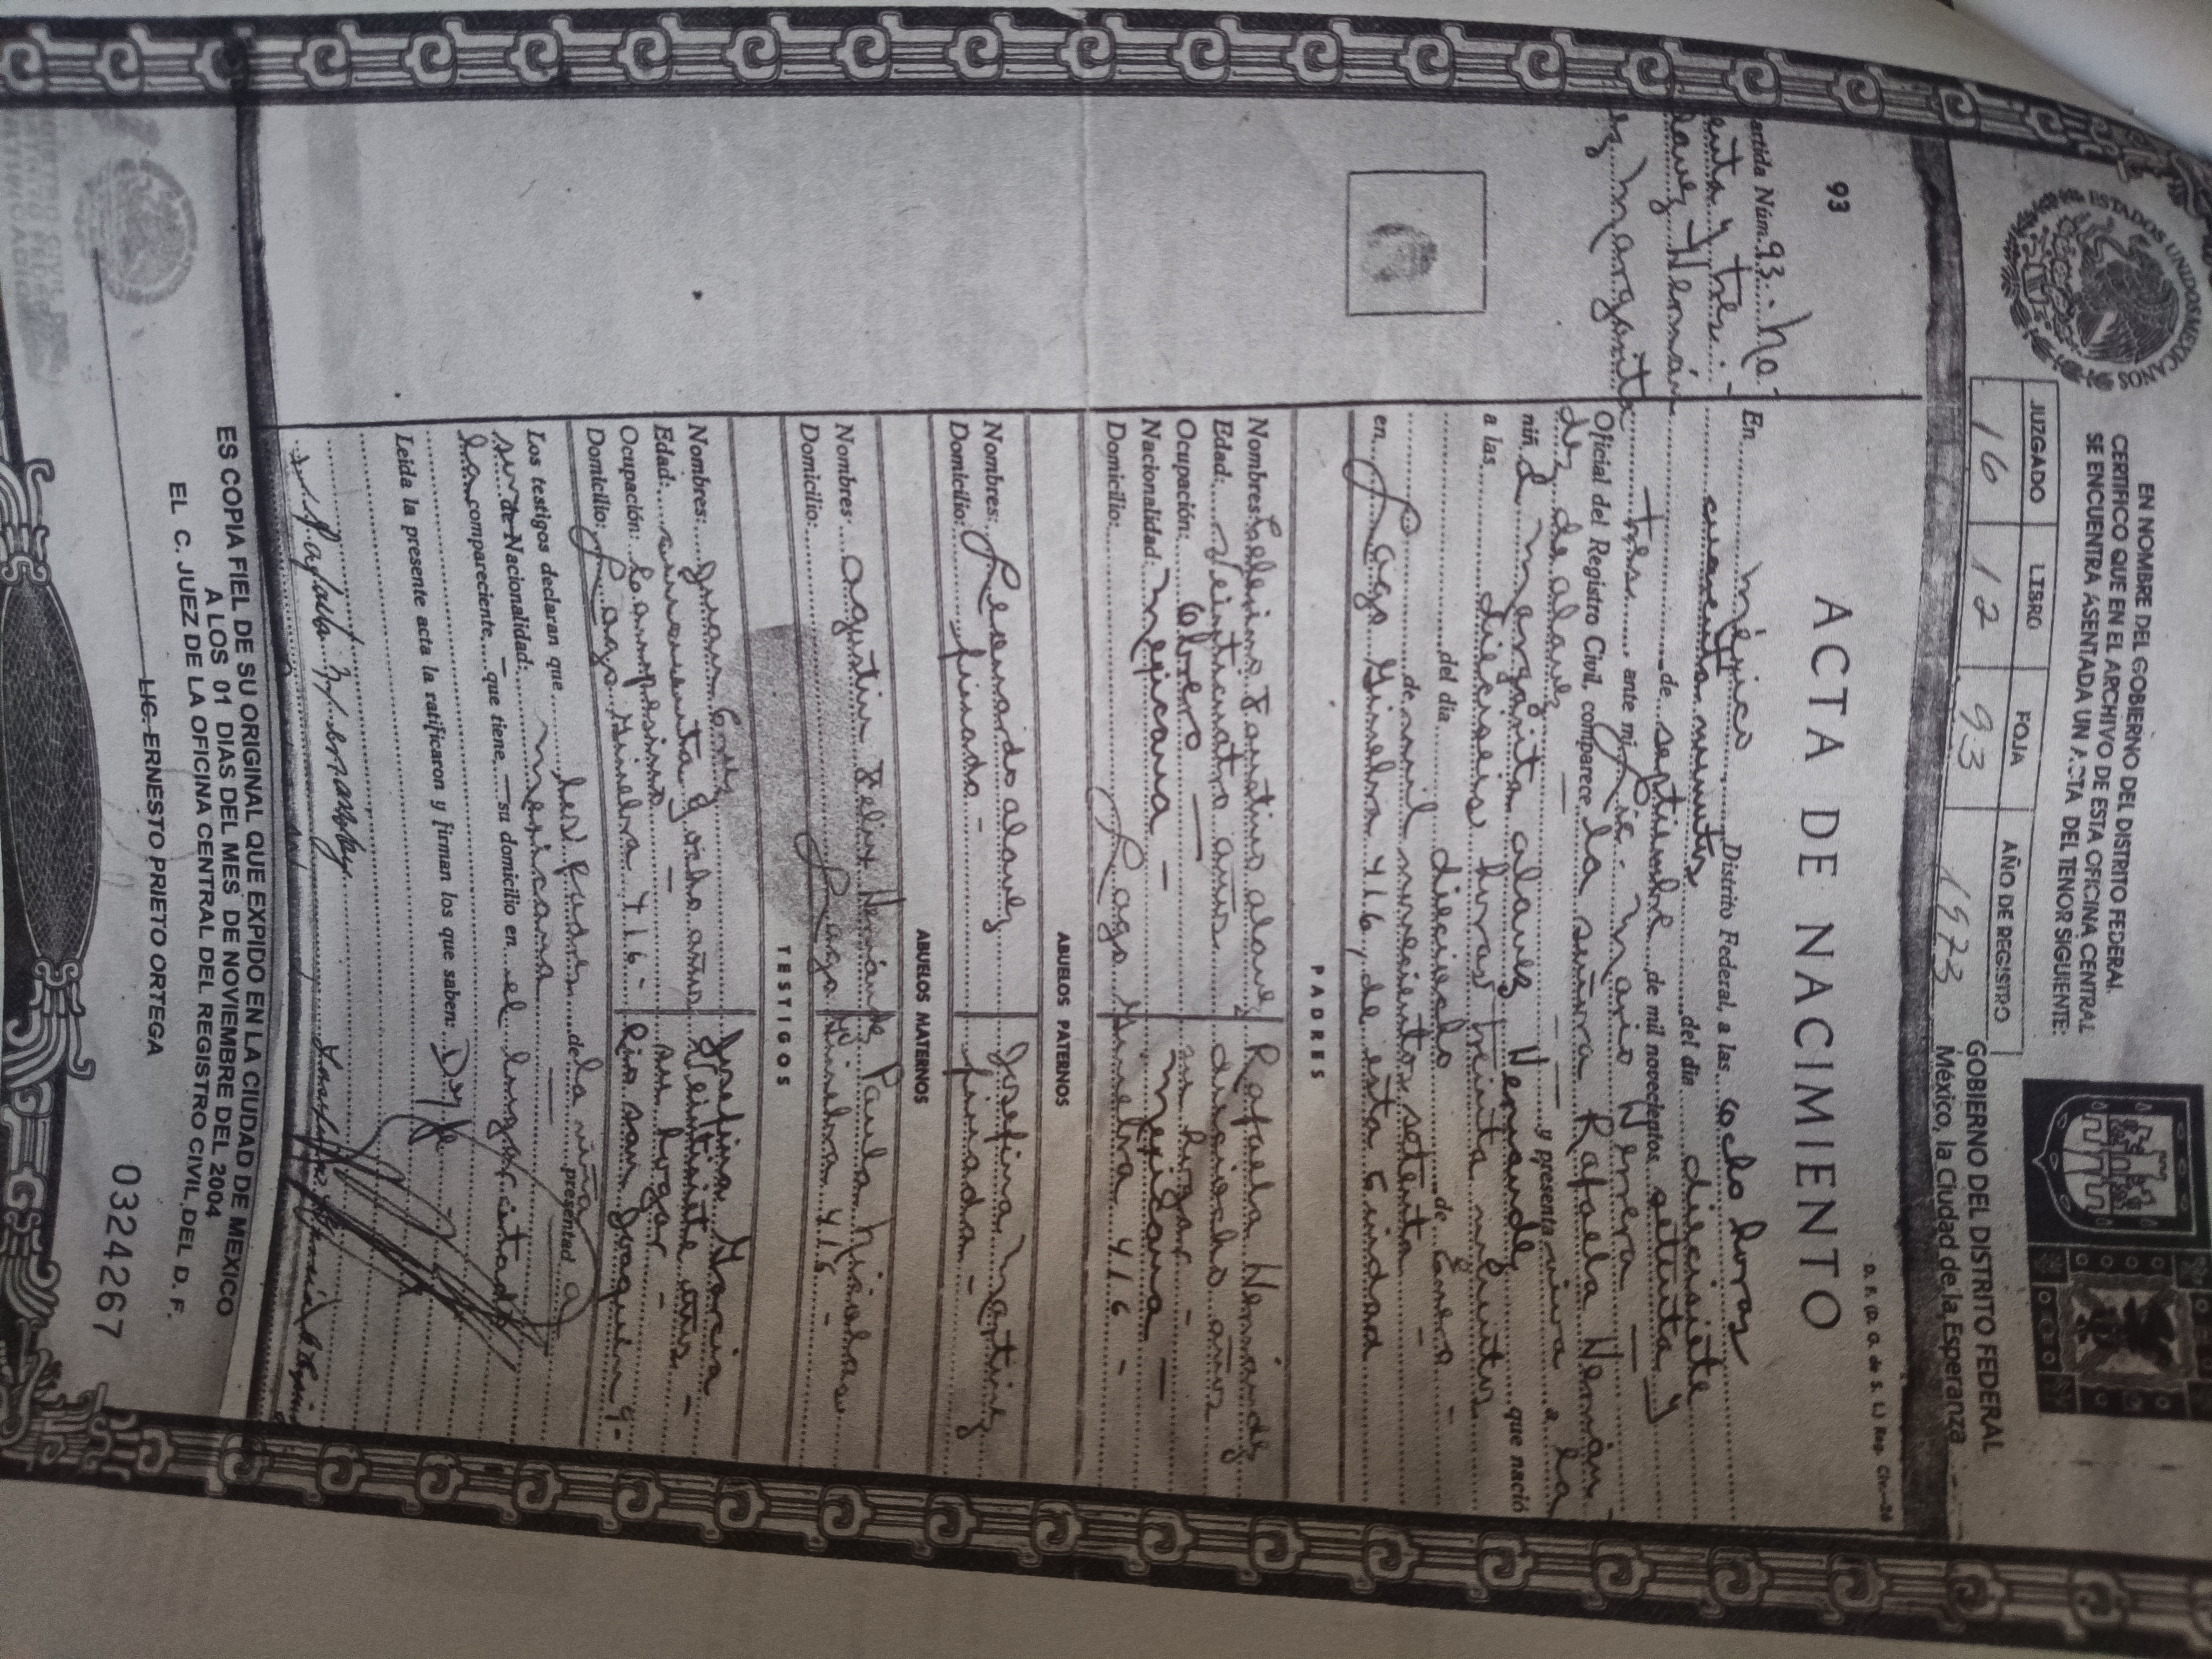 ESTADOS UNIDOS MEXICANOS
EN NOMBRE DEL GOBIERNO DEL DISTRITO FEDERAL
CERTIFICO QUE EN EL ARCHIVO DE ESTA OFICINA CENTRAL
SE ENCUENTRA ASENTADA UN ACTA DEL TENOR SIGUIENTE:
JUZGADO LIBRO FOJA AÑO DE REGISTRO
16 12 93 1973
GOBIERNO DEL DISTRITO FEDERAL
México, la Ciudad de la Esperanza
D. F. (D. G. de S. L.) Reg. Civ.
93
ACTA DE NACIMIENTO
artida Núm. 93.- No-
enta y tres.-
alavez Hernán
ez Margarita
En México Distrito Federal, a las ocho horas
cuarenta minutos del día diecisiete
de septiembre de mil novecientos setenta y
tres ante mi, Lic. Mario Herrera
Oficial del Registro Civil, comparece la señora Rafaela Hernán
dez de alavez y presenta viva a la
niña Margarita alavez Hernandez que nació
a las dieciseis horas treinta minutos
del día dieciocho de Enero
de mil novecientos setenta
en Lago Ginebra 416, de esta Ciudad
PADRES
Nombres: Celerino Faustino alavez Rafaela Hernandez
Edad: veinticuatro años. dieciocho años
Ocupación: Obrero su hogar -
Nacionalidad: Mexicana - Mexicana -
Domicilio: Lago Ginebra 416 -
ABUELOS PATERNOS
Nombres: Leonardo alavez Josefina Martinez
Domicilio: finado - finada -
ABUELOS MATERNOS
Nombres: agustin Felix Hernández Paula Nicolasa
Domicilio: Lago Ginebra 416 -
TESTIGOS
Nombres: Juan Cruz Josefina Garcia
Edad: cincuenta y ocho años Veintisiete años -
Ocupación: Campesino - su hogar -
Domicilio: Lago Ginebra 416 - Rio san Joaquin 9-
Los testigos declaran que los padres de la niña presentada
son de Nacionalidad: Mexicana
La compareciente que tiene su domicilio en el lugar citado
Leída la presente acta la ratificaron y firman los que saben: Doy fe
ES COPIA FIEL DE SU ORIGINAL QUE EXPIDO EN LA CIUDAD DE MEXICO
A LOS 01 DIAS DEL MES DE NOVIEMBRE DEL 2004
EL C. JUEZ DE LA OFICINA CENTRAL DEL REGISTRO CIVIL DEL D. F.
LIC. ERNESTO PRIETO ORTEGA
0324267